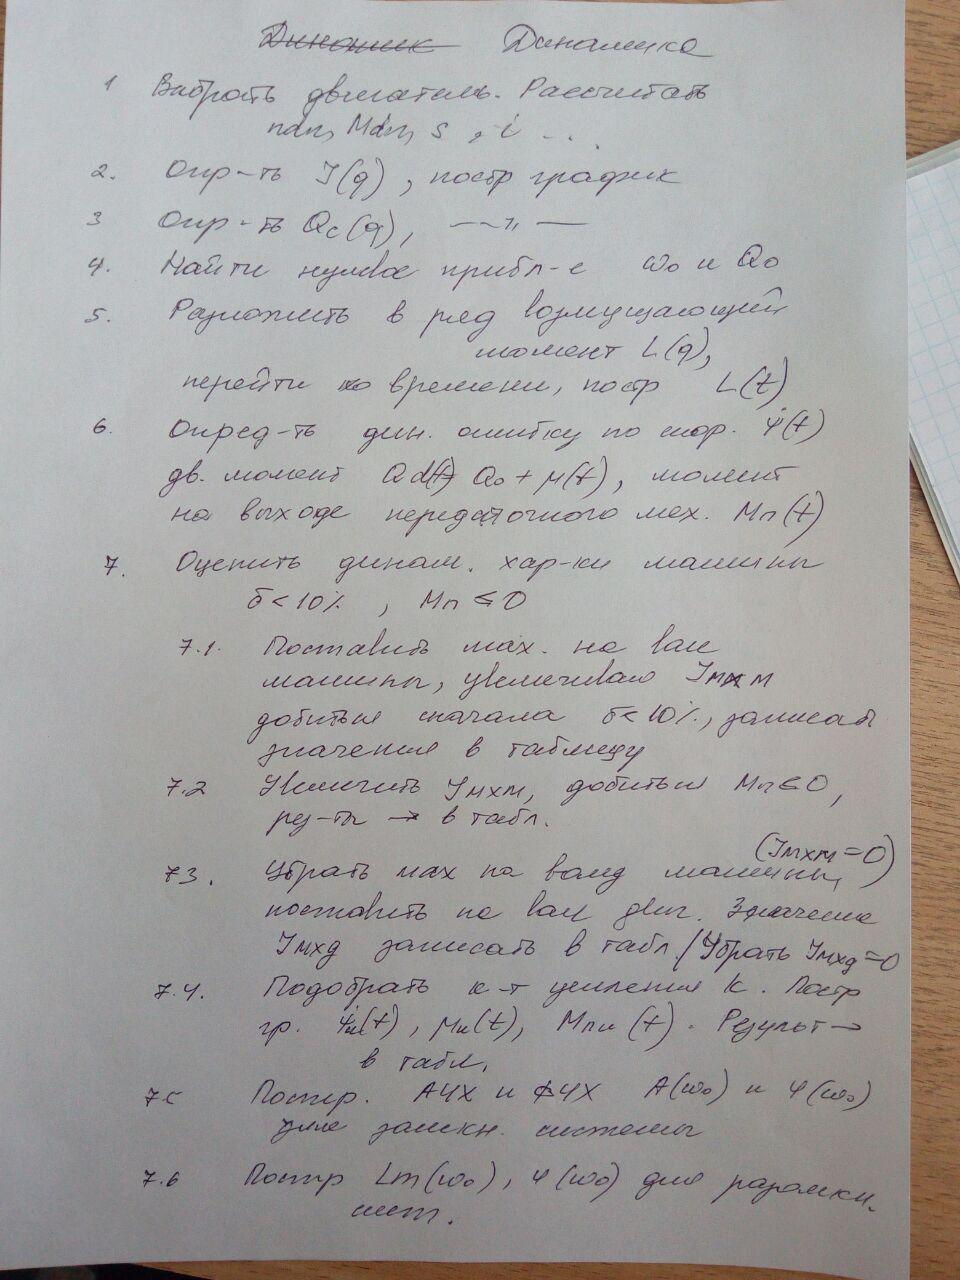 Динамик Динамика
1 Выбрать двигатель. Рассчитать
nдп, Mдп, s, i ...
2. Опр-ть J(q), постр график
3 Опр-ть Qc(q), —〃—
4. Найти нулевое прибл-е ω₀ и Q₀
5. Разложить в ряд возмущающий
момент L(q),
перейти ко времени, постр L(t)
6. Опред-ть дин. ошибку по скор. ψ̇(t)
дв. момент Qd(t) Q₀ + μ(t), момент
на выходе передаточного мех. Mп(t)
7. Оценить динам. хар-ки машины
δ < 10%, Mп ≤ 0
7.1. Поставить мах. на вал
машины, увеличиваю Jмхм
добиться сначала δ < 10%, записать
значения в таблицу
7.2 Увеличить Jмхм, добиться Mп ≤ 0,
рез-ты → в табл.
(Jмхм = 0)
73. Убрать мах на валу машины,
поставить на вал двиг. Значение
Jмхд записать в табл / Убрать Jмхд = 0
7.4. Подобрать к-т усиления К. Постр
гр. ψ̇и(t), μи(t), Mпи(t). Результ →
в табл.
75 Постр. АЧХ и ФЧХ A(ω₀) и φ(ω₀)
для замкн. системы
7.6 Постр Lm(ω₀), φ(ω₀) для разомкн.
сист.